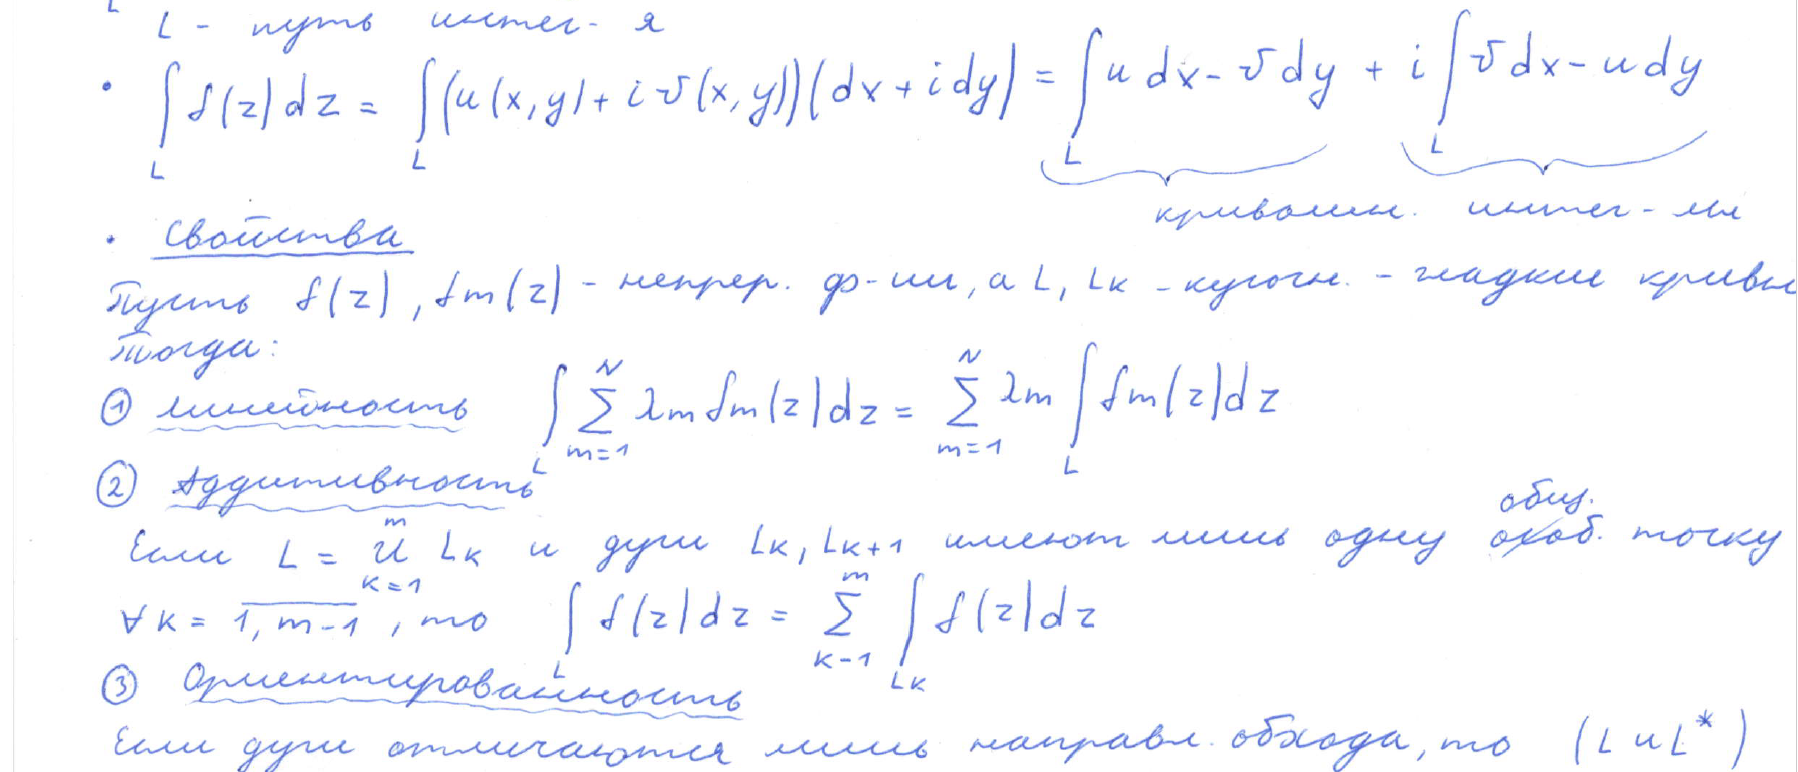 L - путь интег-я
• ∫_L f(z)dz = ∫_L (u(x,y) + iv(x,y))(dx + idy) = ∫_L u dx - v dy + i ∫_L v dx - u dy
криволин. интег-лы
• Свойства
Пусть f(z), fm(z) - непрер. ф-ии, а L, Lк - кусочн. - гладкие кривы
Тогда:
① линейность ∫_L ∑_{m=1}^{N} λm fm(z)dz = ∑_{m=1}^{N} λm ∫_L fm(z)dz
② Аддитивность
общ.
Если L = ∪_{к=1}^{m} Lк и дуги Lк, Lк+1 имеют лишь одну особ. точку
∀к = \overline{1, m-1}, то ∫_L f(z)dz = ∑_{к-1}^{m} ∫_{Lк} f(z)dz
③ Ориентированность
Если дуги отличаются лишь направл. обхода, то (L и L*)